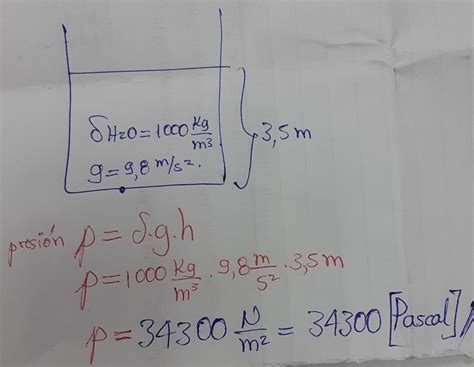 δH2O = 1000 Kg/m³
g = 9,8 m/s².
3,5 m
presión p = δ.g.h
p = 1000 Kg/m³ · 9,8 m/s² · 3,5 m
p = 34300 N/m² = 34300 [Pascal]